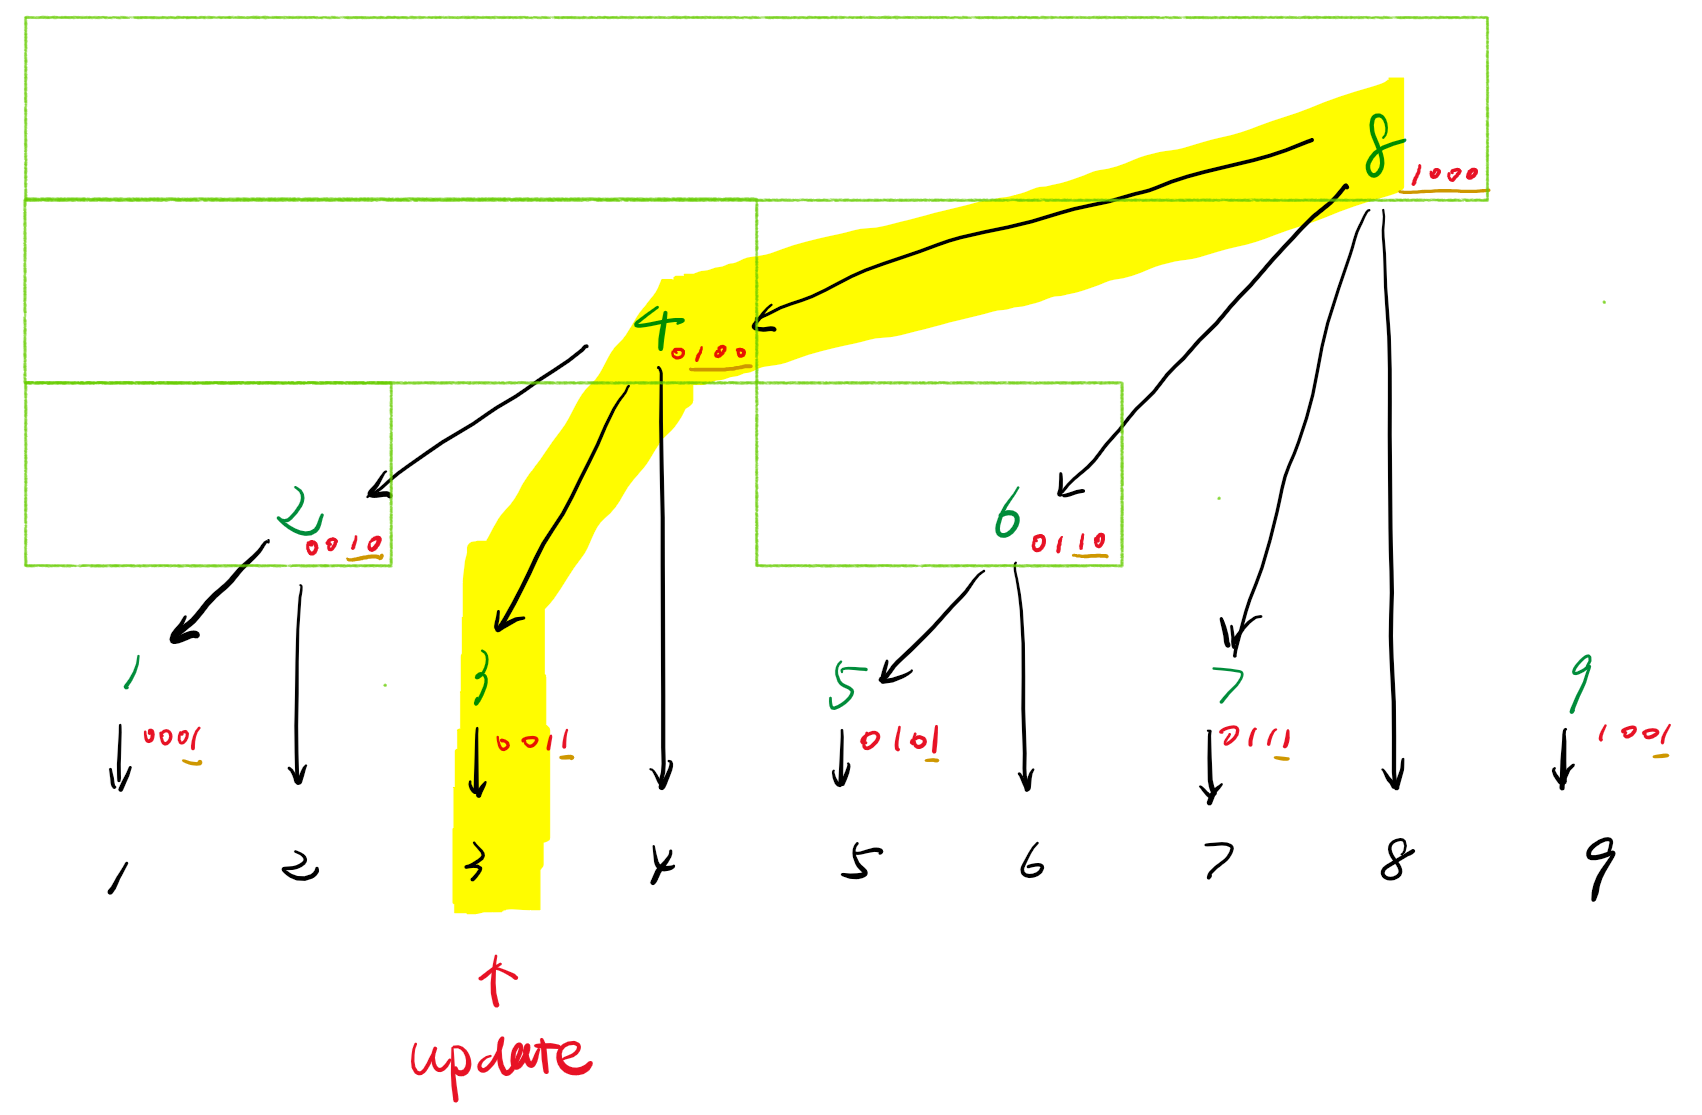 8 1000
4 0100
2 0010 6 0110
1 3 5 7 9
0001 0011 0101 0111 1001
1 2 3 4 5 6 7 8 9
update